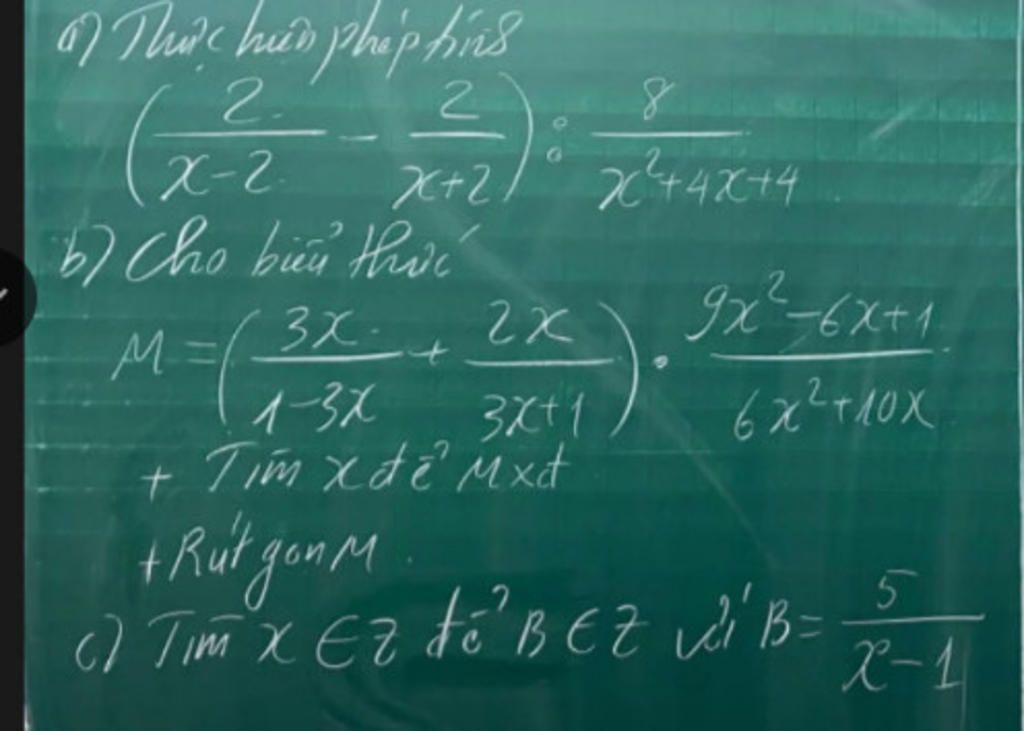 a) Thực hiện phép tính
(2/(x-2) - 2/(x+2)) : 8/(x²+4x+4)
b) Cho biểu thức
M = (3x/(1-3x) + 2x/(3x+1)) · (9x²-6x+1)/(6x²+10x)
+ Tìm x để M xđ
+ Rút gọn M.
c) Tìm x ∈ Z để B ∈ Z với B = 5/(x-1)